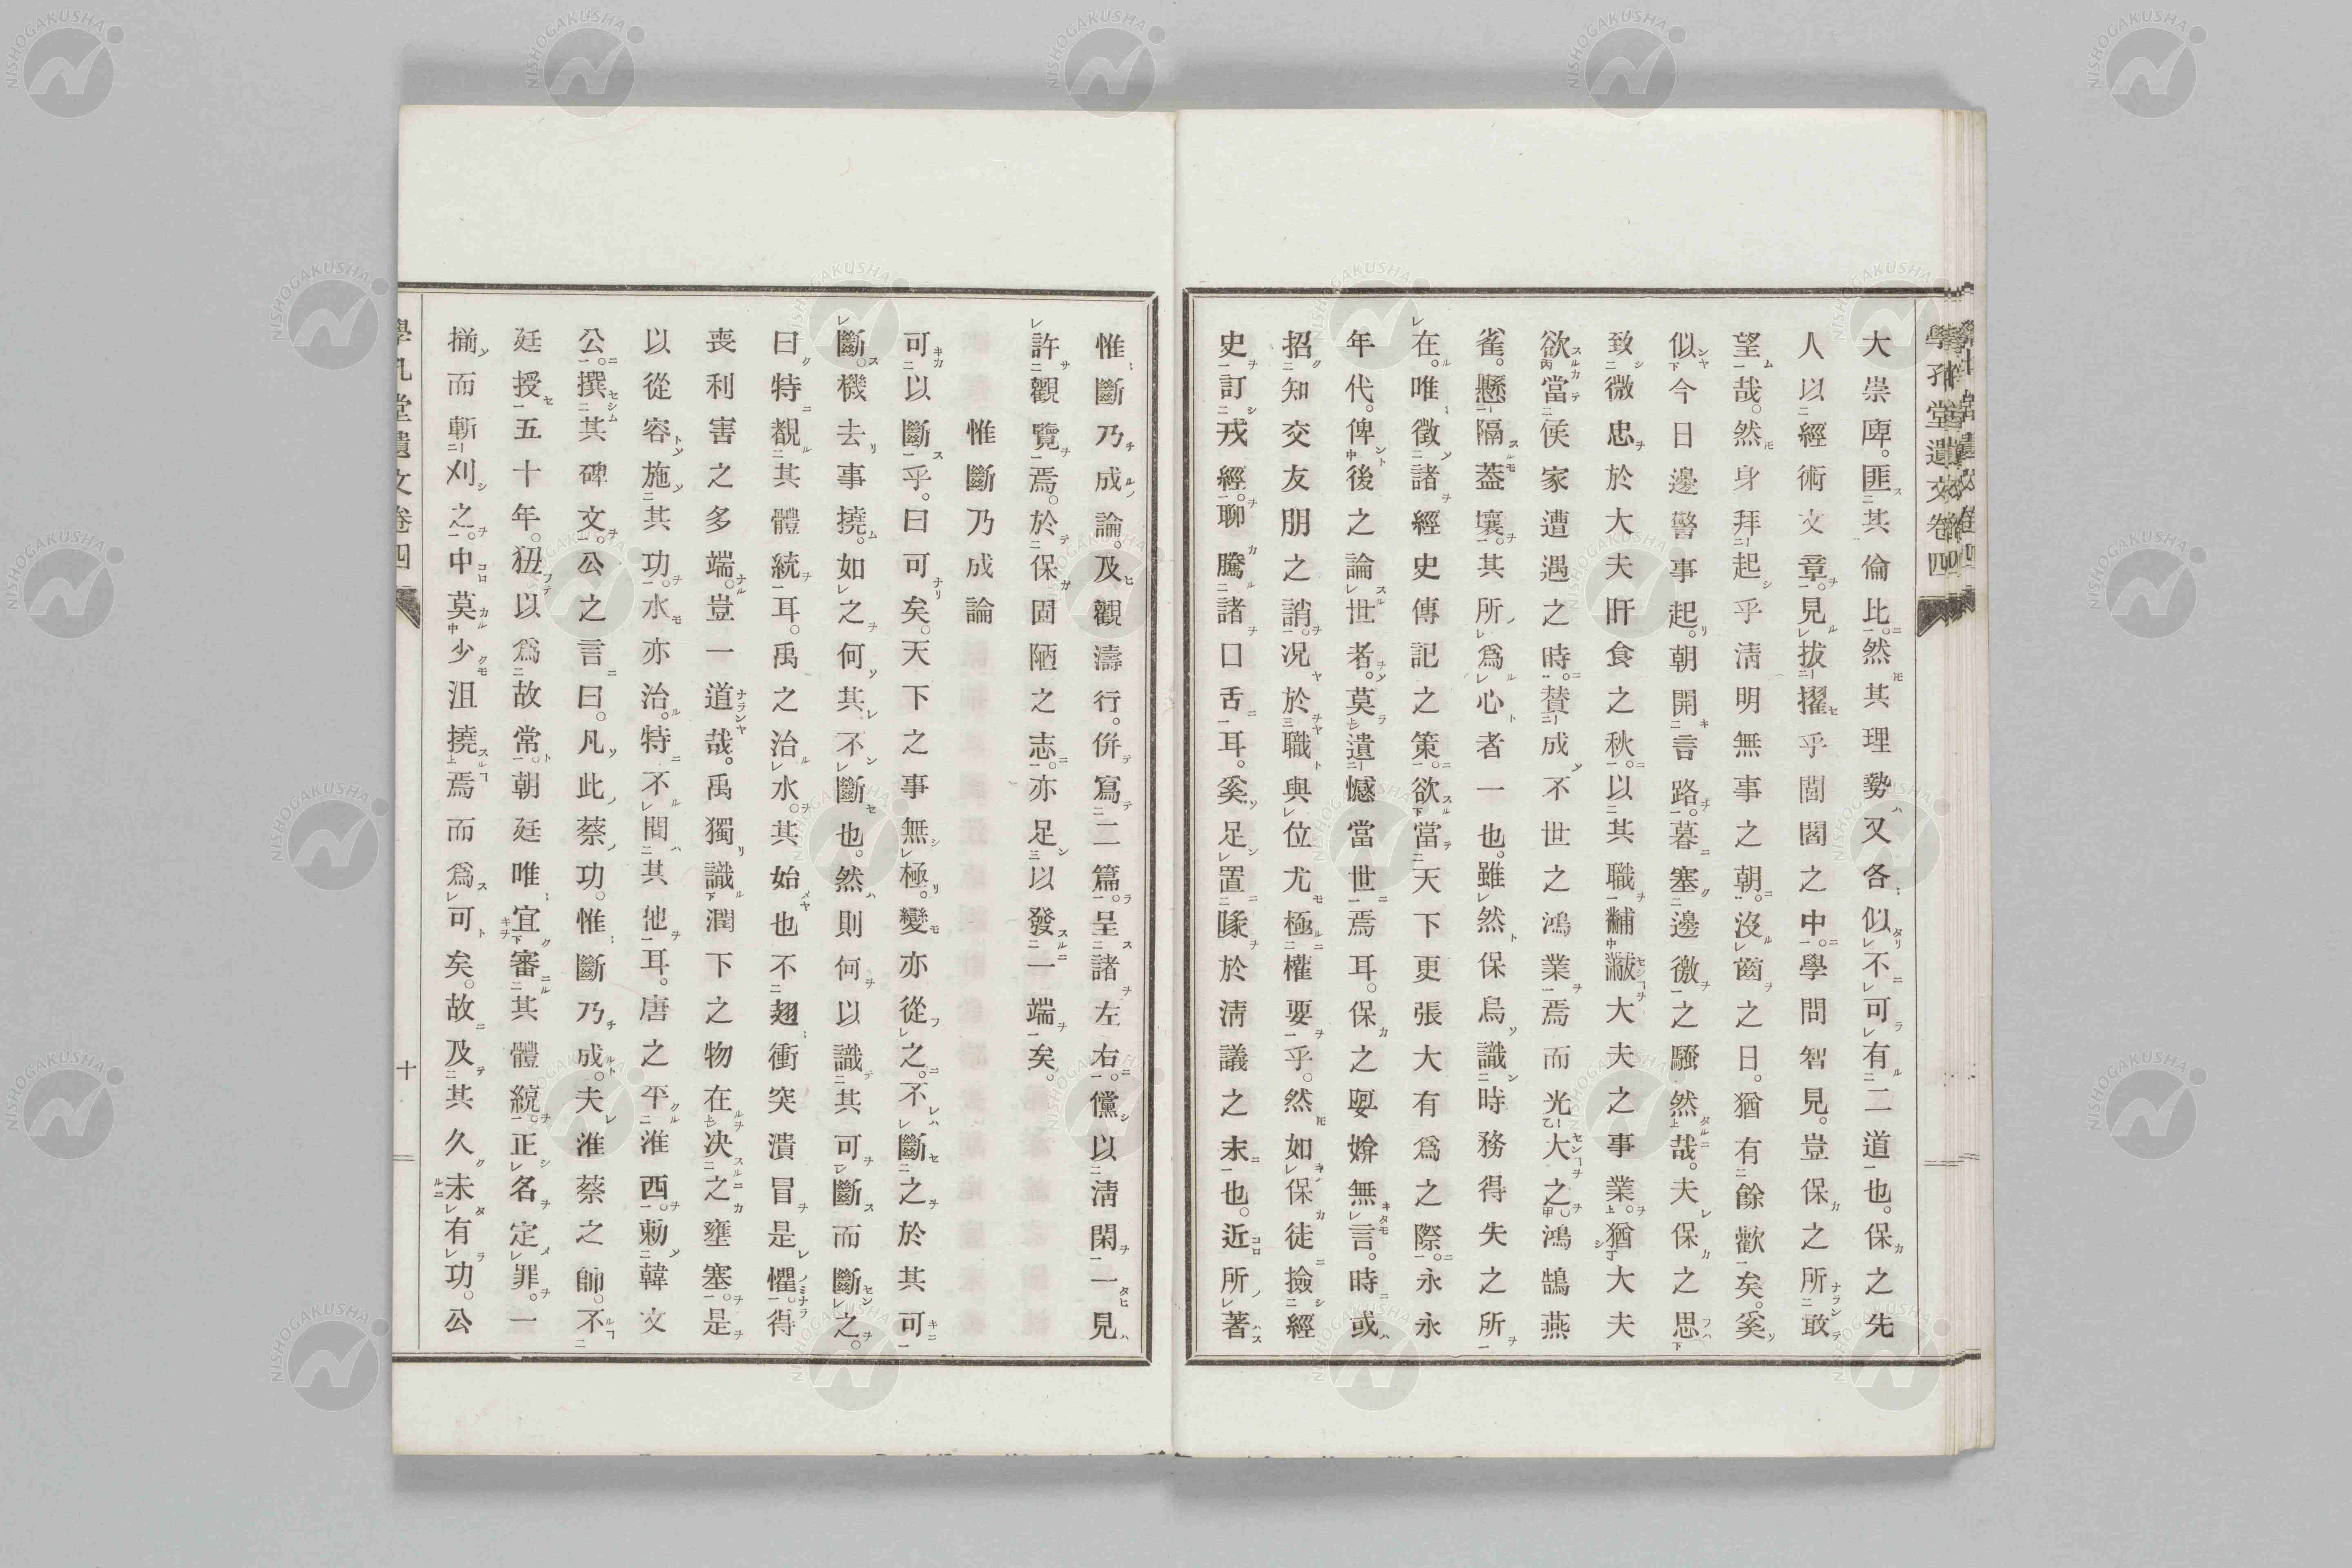 大崇庳。匪其倫比。然其理勢又各似不可有二道也。保之先
人以經術文章。見拔擢乎閭閻之中。學問智見。豈保之所敢
望哉。然身拜起乎淸明無事之朝。沒齒之日。猶有餘歡矣。奚
似今日邊警事起。朝開言路。暮塞邊徼之騷然哉。夫保之思
致微忠於大夫旰食之秋。以其職黼黻大夫之事業。猶大夫
欲當侯家遭遇之時。賛成不世之鴻業焉而光大之。鴻鵠燕
雀。懸隔葢壤。其所爲心者一也。雖然保烏識時務得失之所
在。唯徵諸經史傳記之策。欲當天下更張大有爲之際。永永
年代。俾後之論世者。莫遺憾當世焉耳。保之媕婀無言。時或
招知交友朋之誚。况於職與位尤極權要乎。然如保徒撿經
史訂戎經。聊騰諸口舌耳。奚足置喙於淸議之末也。近所著
惟斷乃成論。及觀濤行。併寫二篇。呈諸左右。儻以淸閑一見
許觀覽焉。於保固陋之志。亦足以發一端矣。
惟斷乃成論
可以斷乎。曰可矣。天下之事無極。變亦從之。不斷之於其可
斷。機去事撓。如之何其不斷也。然則何以識其可斷而斷之。
曰特觀其體統耳。禹之治水。其始也不翅衝突潰冒是懼。得
喪利害之多端。豈一道哉。禹獨識潤下之物在决之壅塞。是
以從容施其功。水亦治。特不聞其他耳。唐之平淮西。勅韓文
公。撰其碑文。公之言曰。凡此蔡功。惟斷乃成。夫淮蔡之師。不
廷授五十年。狃以爲故常。朝廷唯宜審其體統。正名定罪。一
揃而斬刈之。中莫少沮撓焉而爲可矣。故及其久未有功。公
學孔堂遺文卷四
十
學孔堂遺文卷四